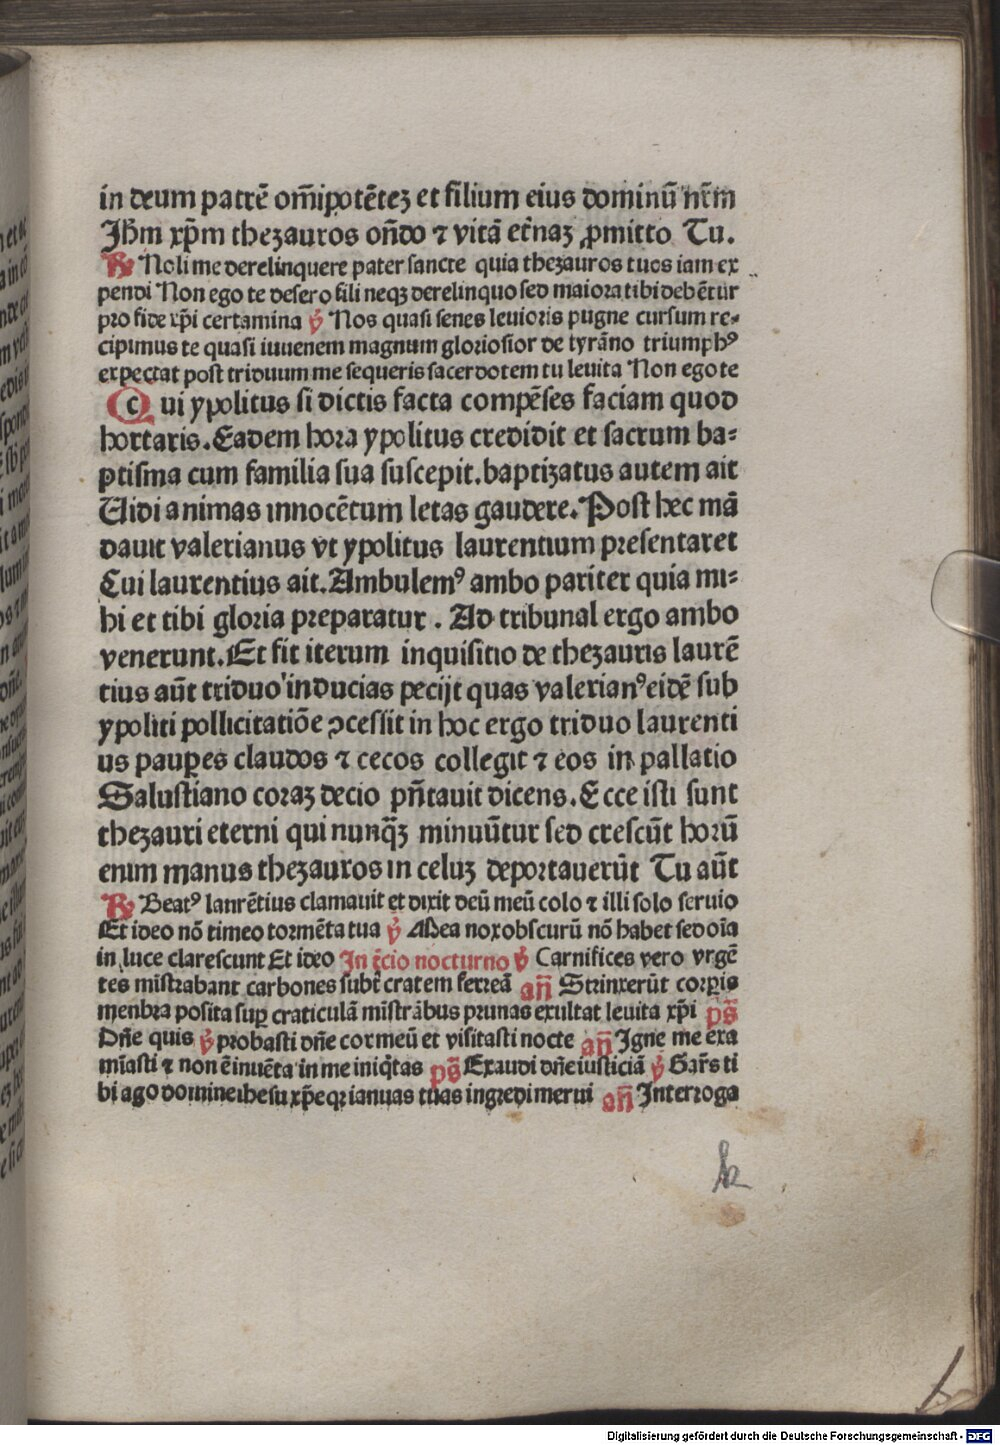 in deum patrē om̄ipotētez et filium eius dominū nr̄m
Jhm̄ xp̄m thezauros on̄do ⁊ vitā et̄naz ꝓmitto Tu.
℟ Noli me derelinquere pater sancte quia thezauros tuos iam ex
pendi Non ego te desero fili neqꝫ derelinquo sed maiora tibi debētur
pro fide xp̄i certamina ℣ Nos quasi senes leuioris pugne cursum re-
cipimus te quasi iuuenem magnum gloriosior de tyrāno triumphꝰ
expectat post triduum me sequeris sacerdotem tu leuita Non ego te
Qui ypolitus si dictis facta compēses faciam quod
hortaris. Eadem hora ypolitus credidit et sacrum ba-
ptisma cum familia sua suscepit. baptizatus autem ait
Uidi animas innocētum letas gaudere. Post hec mā
dauit valerianus vt ypolitus laurentium presentaret
Cui laurentius ait. Ambulemꝰ ambo pariter quia mi-
hi et tibi gloria preparatur. Ad tribunal ergo ambo
venerunt. Et fit iterum inquisitio de thezauris laurē
tius aūt triduo inducias pecijt quas valerianꝰ eidē sub
ypoliti pollicitatiōe ꝯcessit in hoc ergo triduo laurenti
us pauꝑes claudos ⁊ cecos collegit ⁊ eos in pallatio
Salustiano coraz decio pn̄tauit dicens. Ecce isti sunt
thezauri eterni qui nunq̄ꝫ minuūtur sed crescūt horū
enim manus thezauros in celuz deportauerūt Tu aūt
℟ Beatꝰ laurētius clamauit et dixit deū meū colo ⁊ illi solo seruio
Et ideo nō timeo tormēta tua ℣ Mea nox obscurū nō habet sed oīa
in luce clarescunt Et ideo In t̄cio nocturno ℣ Carnifices vero vrgē
tes mīstrabant carbones subt̄ cratem ferreā an̄ Strinxerūt corꝑis
menbra posita suꝑ craticulā mīstrābus prunas exultat leuita xp̄i ps̄
Dn̄e quis ℣ probasti dn̄e cor meū et visitasti nocte an̄ Igne me exa
mīasti ⁊ non ē inuēta in me iniq̄tas ps̄ Exaudi dn̄e iusticiā ℣ Gar̄s ti
bi ago domine ihesu xp̄e qr ianuas tuas ingredi merui an̄ Interroga
Digitalisierung gefördert durch die Deutsche Forschungsgemeinschaft - DFG